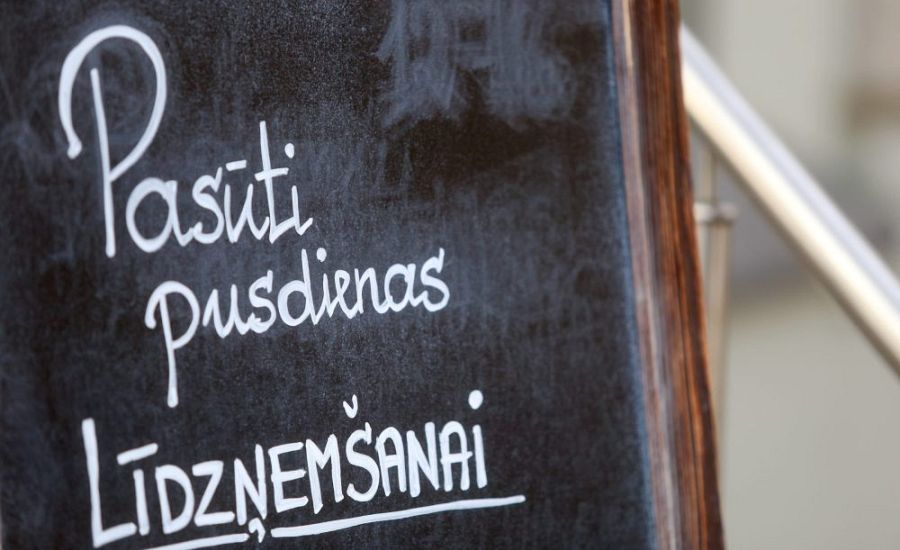 Pasūti
pusdienas
LĪDZŅEMŠANAI